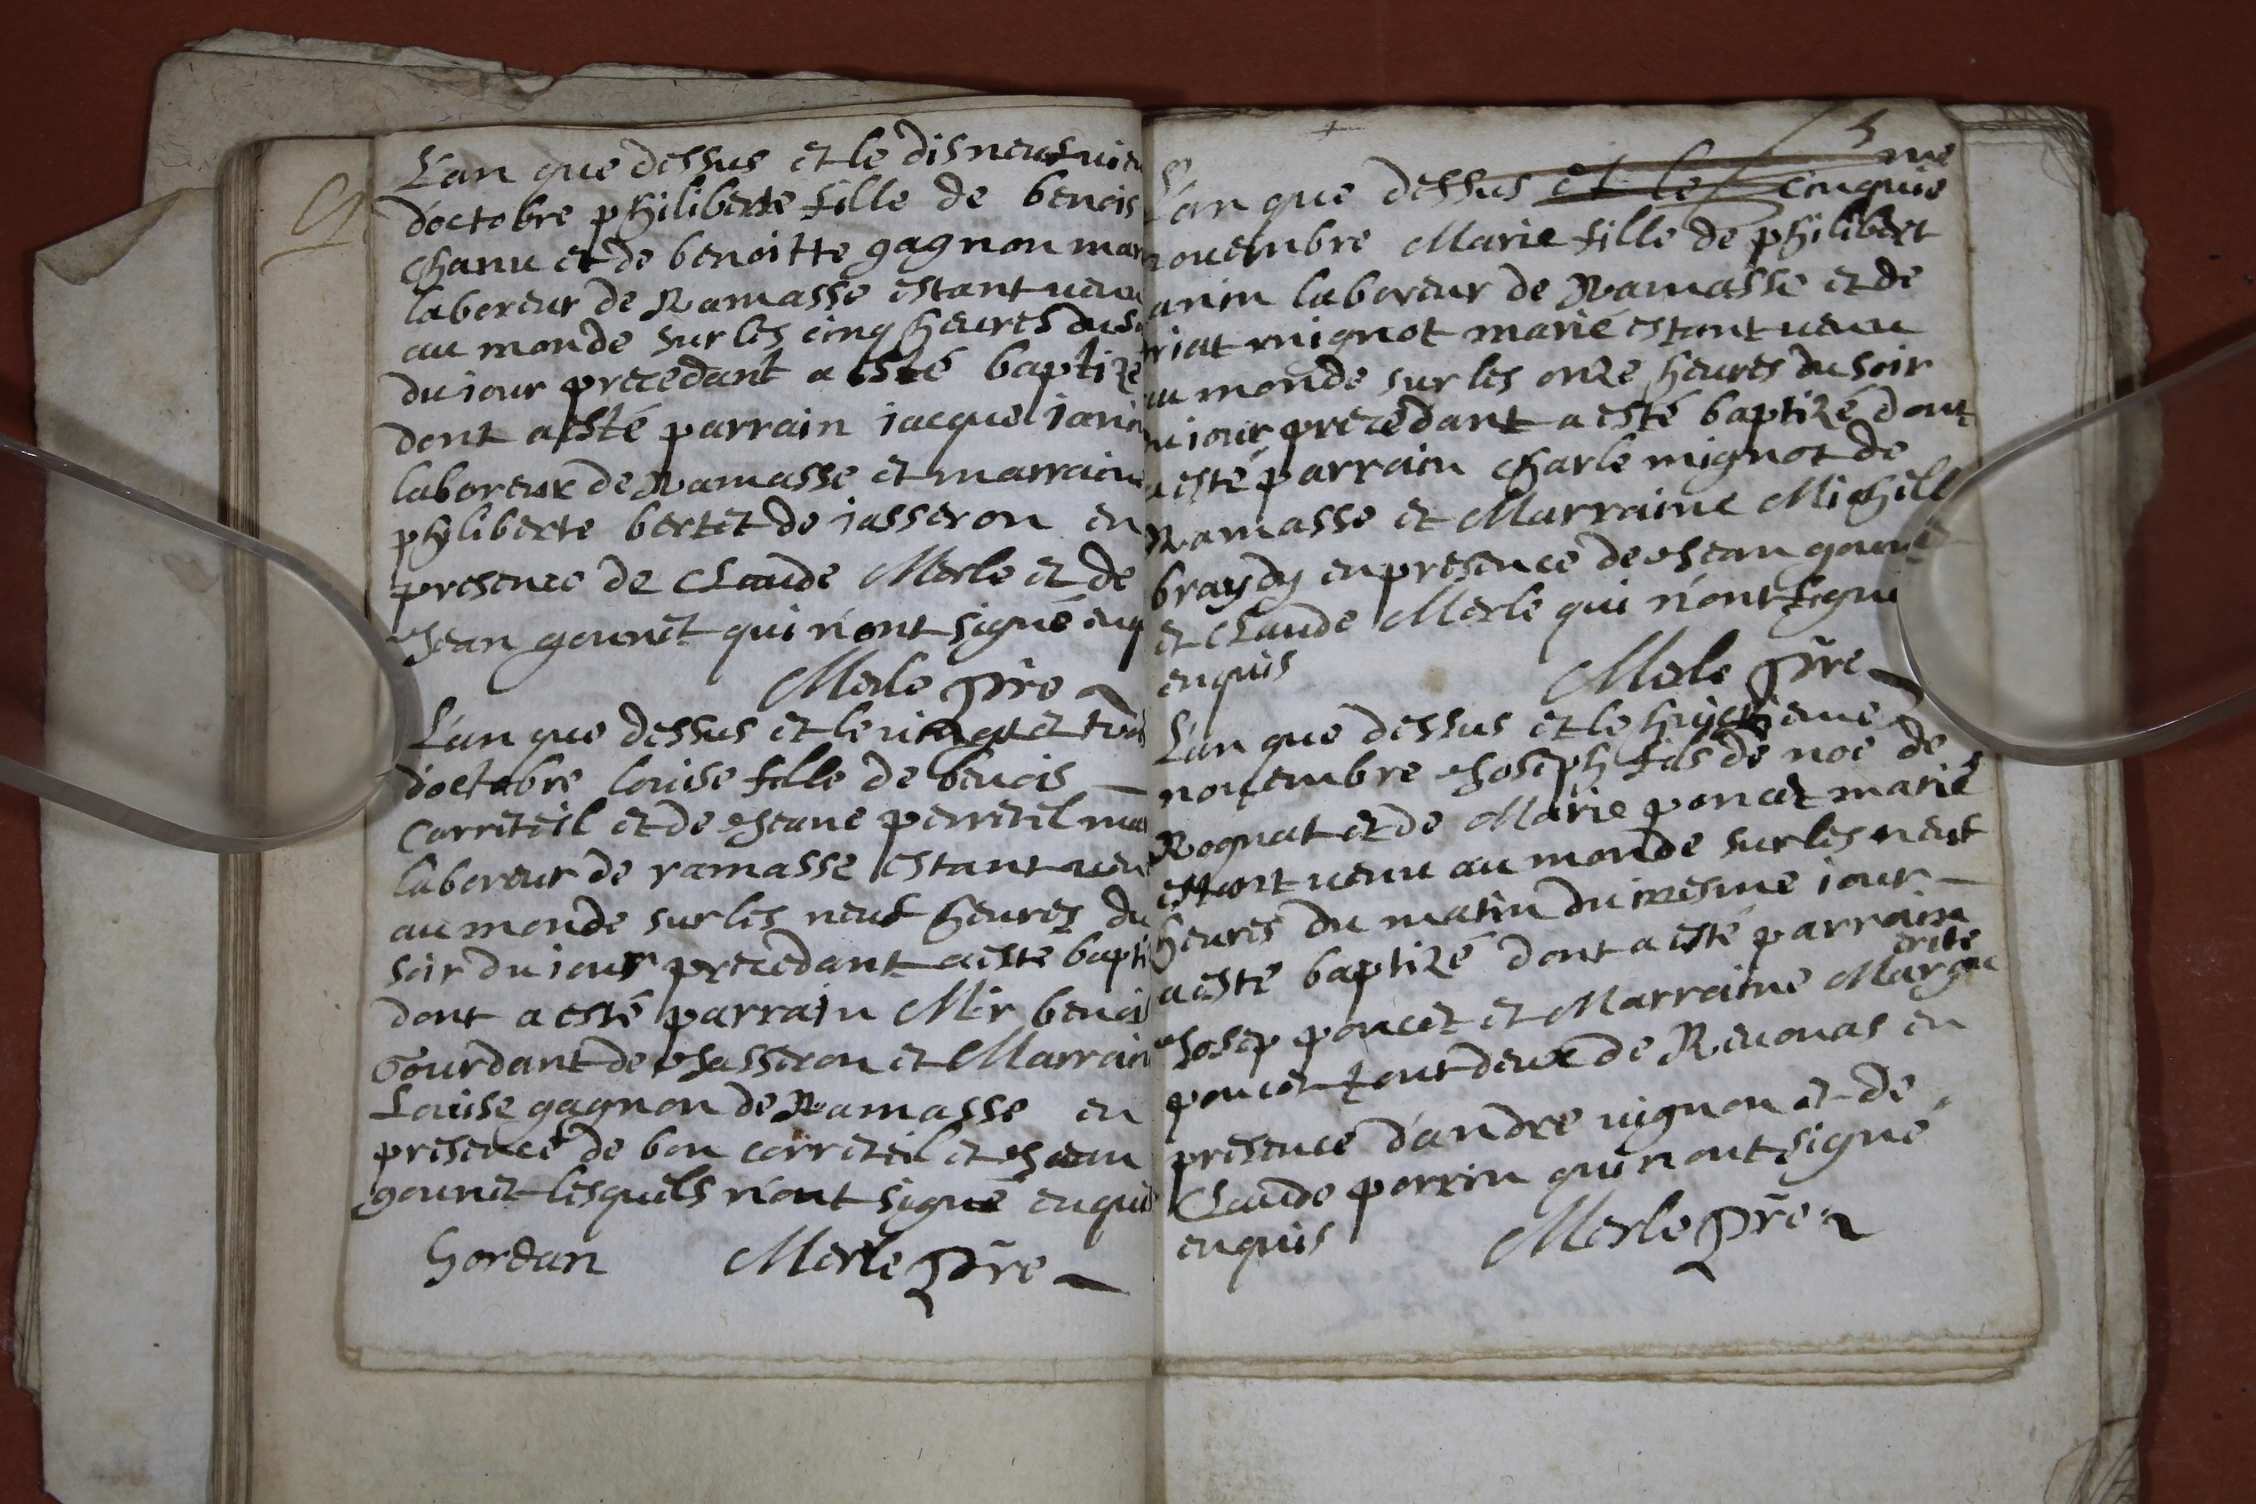 L'an que dessus et le disneufuien
d'octobre philiberte fille de benois
chanu et de benoitte gagnon mar
laboreur de Ramasse estant uenu
au monde sur les cinq heures du s
du iour precedant a esté baptizé
dont a esté parrain iacque iarin
laboreur de Ramasse et marraine
philiberte bertet de iasseron en
presence de Claude Merle et de
Jean gounet qui n'ont signé enq
Merle pr̃e
L'an que dessus et le uingt et trois
d'octobre louise fille de benois
Correteil et de Jeane perretil mar
laboreur de ramasse estant uenu
au monde sur les neuf heures du
soir du iour precedant a esté bapti
dont a esté parrain Mir benoi
Gourdant de Jasseron et Marrain
Louise gagnon de Ramasse en
presence de bon correteil et Jean
gounet lesquels n'ont signé enquis
Gordan Merle pr̃e
5
me
L'an que dessus et le cinquie
nouembre Marie fille de philibert
arin laboreur de Ramasse et de
riat mignot marié estant uenu
au monde sur les onze heures du soir
du iour precedant a esté baptizé dont
a esté parrain charle mignot de
Ramasse et Marraine Michell
braydy en presence de Jean goune
et Claude Merle qui n'ont signé
enquis Merle pr̃e
L'an que dessus et le huyctieme
nouembre Joseph fils de noe de
Rognat et de Marie poncet marié
estant uenu au monde sur les neuf
heures du matin du mesme iour
a esté baptizé dont a esté parrain
erite
Josep poncet et Marraine Margu
poncet tout deux de Reuonas en
presence d'andre uignon et de
Claude perrin qui n'ont signé
enquis Merle pr̃e